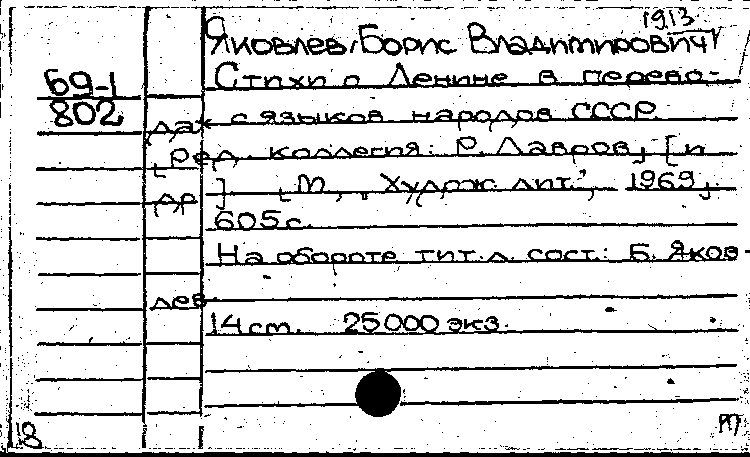 1913
Яковлев, Борис Владимирович
69-1
802
Стихи о Ленине в перево-
дах с языков народов СССР.
[Ред. коллегия: Р. Лавров, [и
др]. [М., "Худож. лит.", 1969,
605 с.
На обороте тит. л. сост.: Б. Яков-
лев.
14 cm. 25000 экз.
18
m